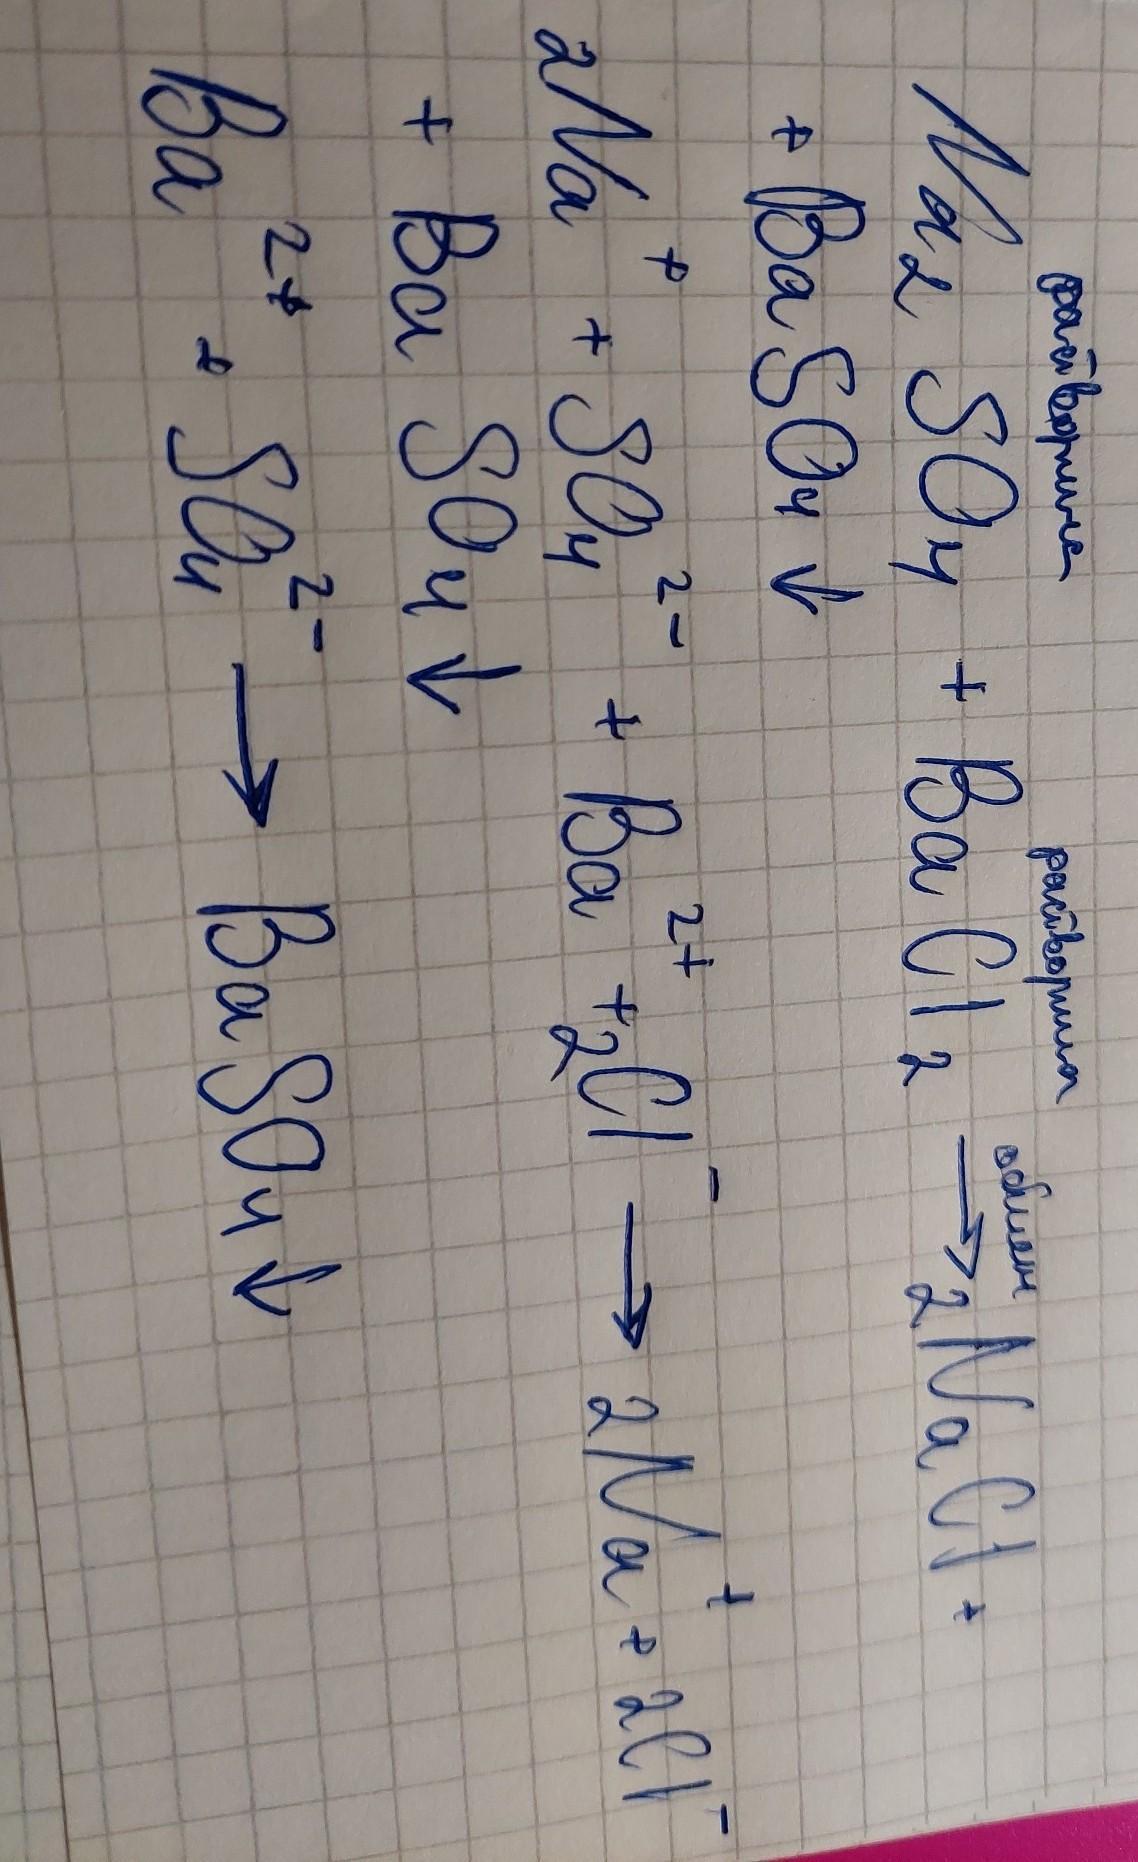 растворима растворима обмен
Na₂SO₄ + BaCl₂ → 2NaCl +
+ BaSO₄↓
2Na⁺ + SO₄²⁻ + Ba²⁺ + 2Cl⁻ → 2Na⁺ + 2Cl⁻
+ BaSO₄↓
Ba²⁺ + SO₄²⁻ → BaSO₄↓